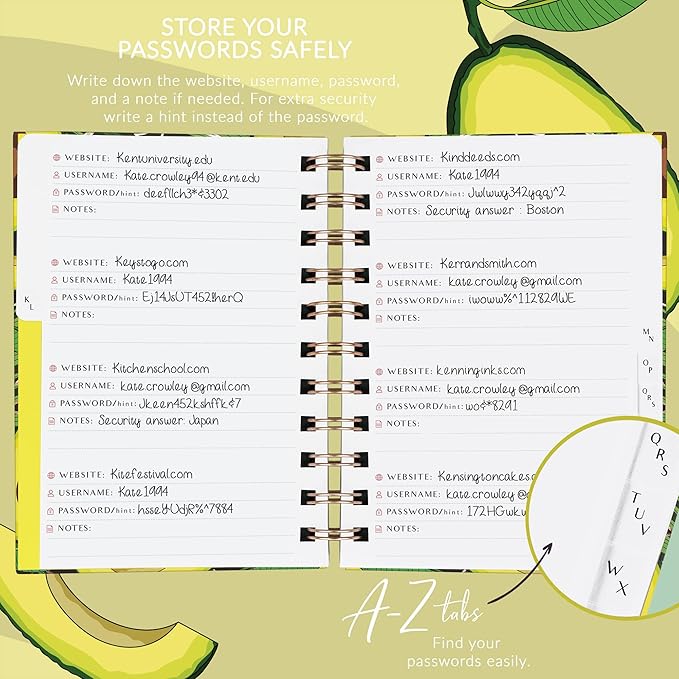 STORE YOUR
PASSWORDS SAFELY
Write down the website, username, password,
and a note if needed. For extra security
write a hint instead of the password.
WEBSITE: Kentuniversity.edu
USERNAME: Katecrowley94@kent.edu
PASSWORD/hint: deefllch3*&3302
NOTES:
WEBSITE: Keystogo.com
USERNAME: Kate1994
PASSWORD/hint:
NOTES:
WEBSITE: Kitchenschool.com
USERNAME: kate.crowley@gmail.com
PASSWORD/hint: Jkeen452kshffk&7
NOTES: Security answer: Japan
WEBSITE: Kitefestival.com
USERNAME: Kate1994
PASSWORD/hint: hsseYUdjR%^7884
NOTES:
K
L
WEBSITE: Kinddeeds.com
USERNAME: Kate1994
PASSWORD/hint: Jwlwwy342yqqj^2
NOTES: Security answer : Boston
WEBSITE: Kerrandsmith.com
USERNAME: kate.crowley@gmail.com
PASSWORD/hint: iwoww%^112829WE
NOTES:
WEBSITE: kenninginks.com
USERNAME: kate.crowley@gmail.com
PASSWORD/hint: wo&*8291
NOTES:
WEBSITE: Kensingtoncakes.c
USERNAME: kate.crowley@g
PASSWORD/hint: 172HGwk
NOTES:
M N
O P
Q R S
Q R S
T U V
W X
A-Z tabs
Find your
passwords easily.